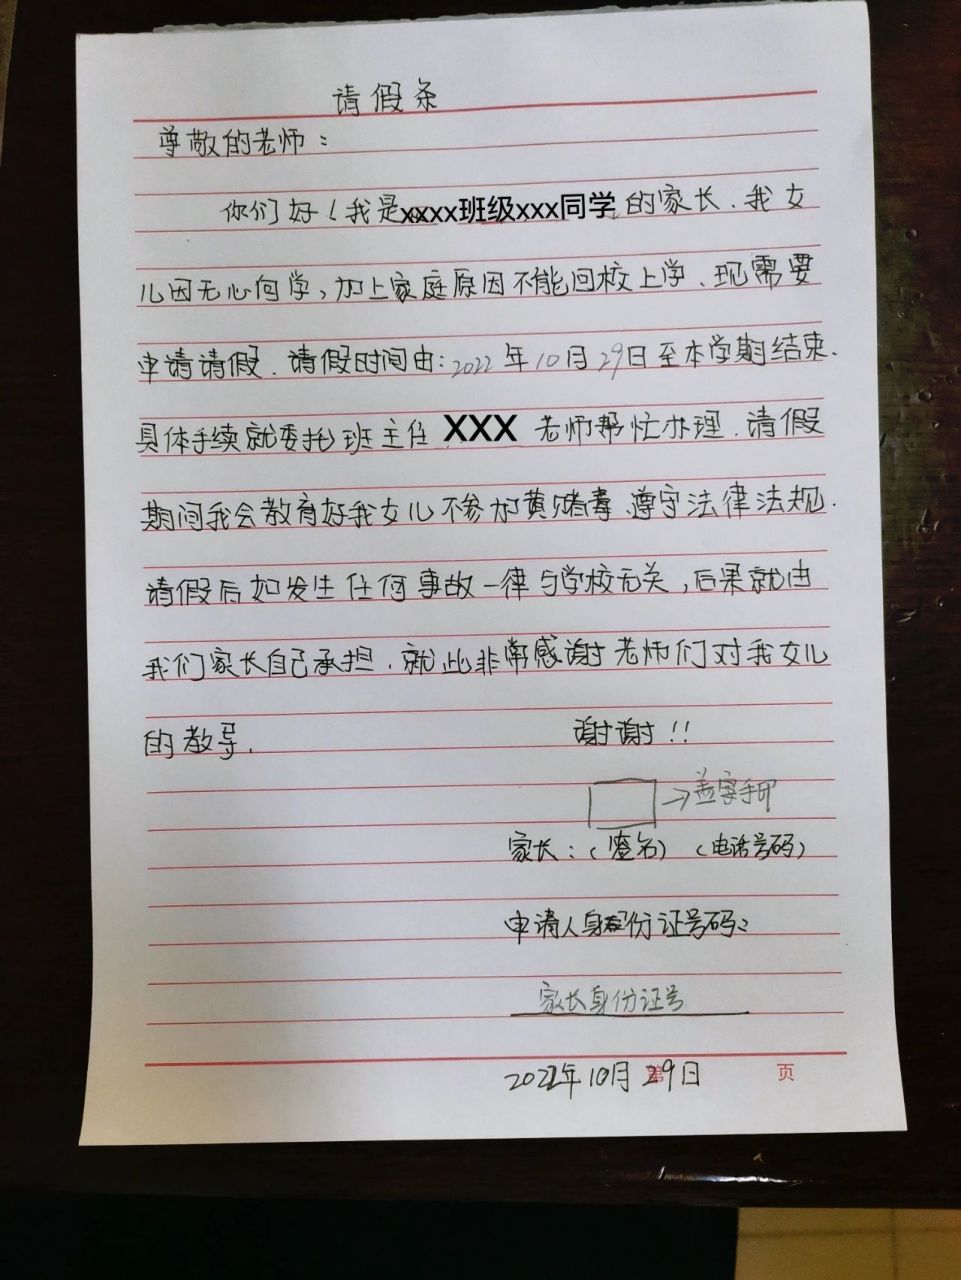 请假条
尊敬的老师：
你们好！我是xxxx班级xxx同学的家长.我女
儿因无心向学,加上家庭原因不能回校上学、现需要
申请请假.请假时间由:2022年10月29日至本学期结束.
具体手续就委托班主任XXX老师帮忙办理.请假
期间我会教育好我女儿不参加黄赌毒、遵守法律法规.
请假后如发生任何事故一律与学校无关,后果就由
我们家长自己承担.就此非常感谢老师们对我女儿
的教导.
谢谢!!
→盖家手印
家长：(签名)(电话号码)
申请人身份证号码:
家长身份证号
2022年10月29日
第 页